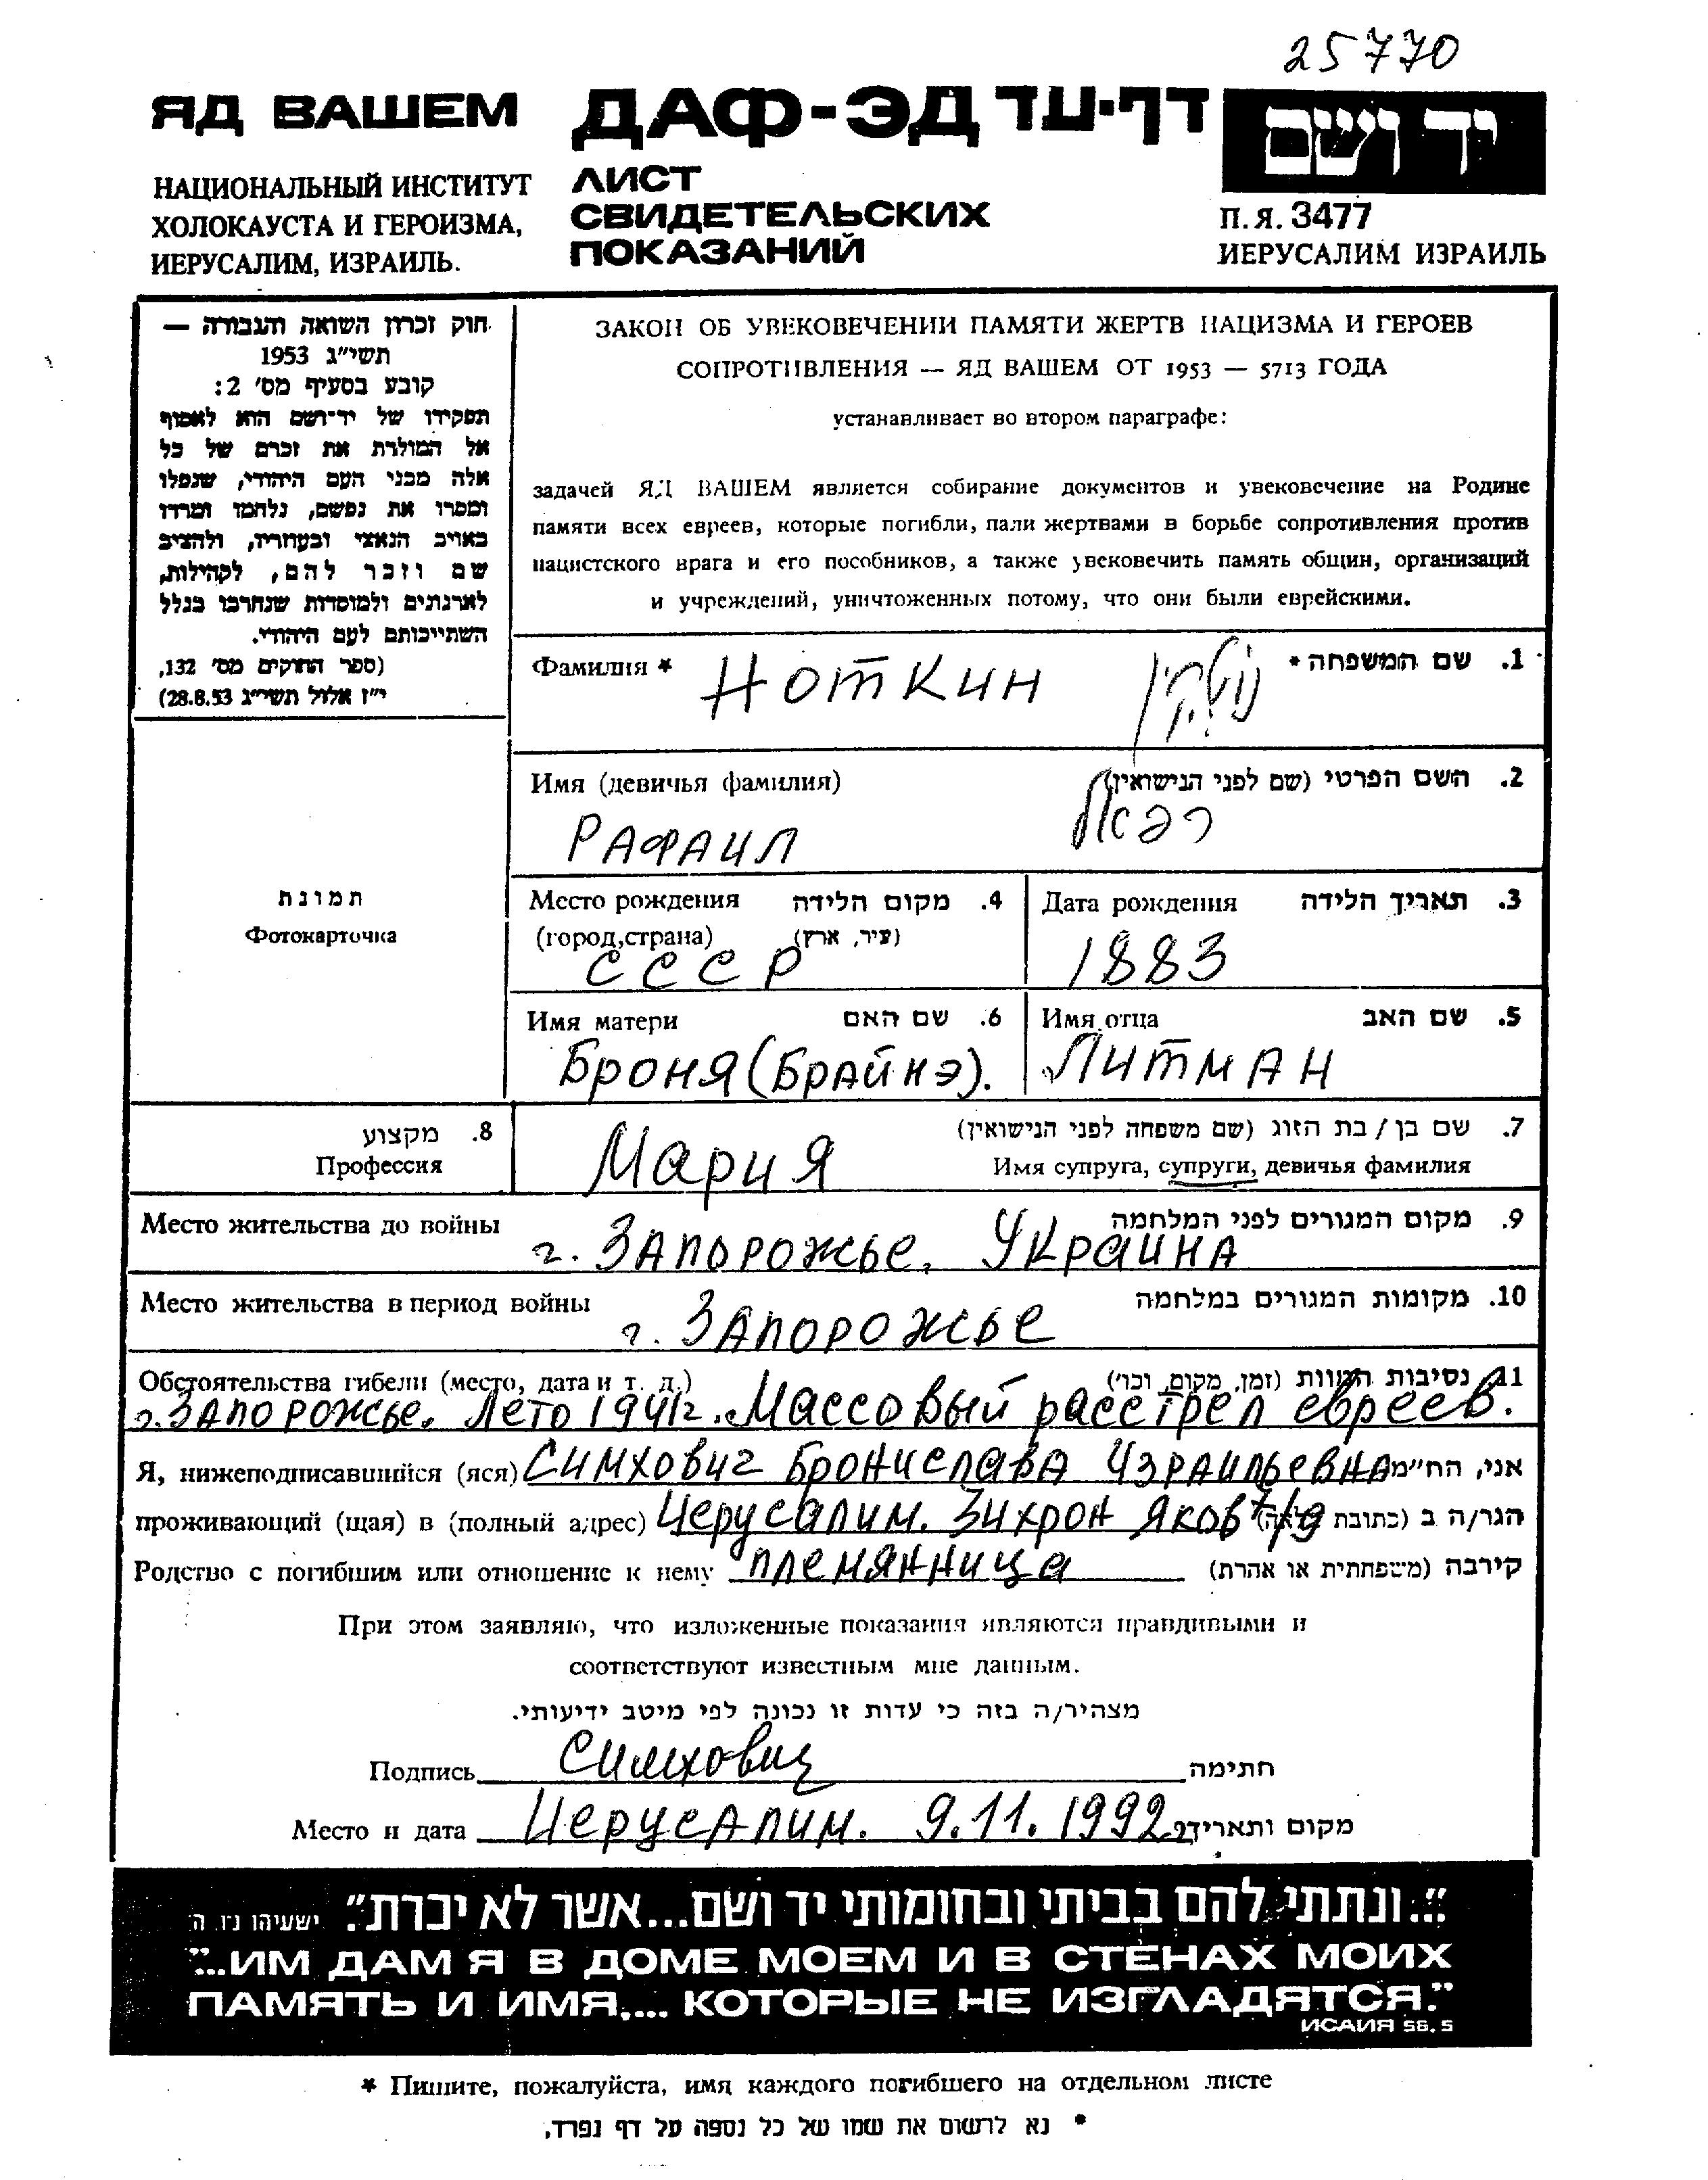 25770
ЯД ВАШЕМ
ДАФ-ЭД דף-עד
יד ושם
НАЦИОНАЛЬНЫЙ ИНСТИТУТ
ХОЛОКАУСТА И ГЕРОИЗМА,
ИЕРУСАЛИМ, ИЗРАИЛЬ.
ЛИСТ
СВИДЕТЕЛЬСКИХ
ПОКАЗАНИЙ
П.Я. 3477
ИЕРУСАЛИМ ИЗРАИЛЬ
חוק זכרון השואה והגבורה —
תשי״ג 1953
קובע בסעיף מס׳ 2:
תפקידו של יד-ושם הוא לאסוף
אל המולדת את זכרם של כל
אלה מבני העם היהודי, שנפלו
ומסרו את נפשם, נלחמו ומרדו
באויב הנאצי ובעוזריו, ולהציב
שם וזכר להם, לקהילות,
לארגונים ולמוסדות שנחרבו בגלל
השתייכותם לעם היהודי.
(ספר החוקים מס׳ 132,
י״ז אלול תשי״ג 28.8.53)
ЗАКОН ОБ УВЕКОВЕЧЕНИИ ПАМЯТИ ЖЕРТВ НАЦИЗМА И ГЕРОЕВ
СОПРОТИВЛЕНИЯ — ЯД ВАШЕМ ОТ 1953 — 5713 ГОДА
устанавливает во втором параграфе:
задачей ЯД ВАШЕМ является собирание документов и увековечение на Родине
памяти всех евреев, которые погибли, пали жертвами в борьбе сопротивления против
нацистского врага и его пособников, а также увековечить память общин, организаций
и учреждений, уничтоженных потому, что они были еврейскими.
Фамилия * Ноткин נוטקין 1. שם המשפחה *
Имя (девичья фамилия) 2. השם הפרטי (שם לפני הנישואין)
РАФАИЛ רפאל
תמונת
Фотокарточка
Место рождения 4. מקום הלידה
(город,страна) (עיר, ארץ)
СССР
Дата рождения 3. תאריך הלידה
1883
Имя матери 6. שם האם
Броня (Брайнэ).
Имя отца 5. שם האב
Литман
8. מקצוע
Профессия
Мария 7. שם בן / בת הזוג (שם משפחה לפני הנישואין)
Имя супруга, супруги, девичья фамилия
Место жительства до войны 9. מקום המגורים לפני המלחמה
г. Запорожье, Украина
Место жительства в период войны 10. מקומות המגורים במלחמה
г. Запорожье
Обстоятельства гибели (место, дата и т. д.) 11. נסיבות המוות (זמן, מקום, וכו׳)
г. Запорожье. Лето 1941г. Массовый расстрел евреев.
Я, нижеподписавшийся (яся) Симхович Бронислава Израильевна אני, הח״מ
проживающий (щая) в (полный адрес) Иерусалим. Зихрон Яков 7/9 הגר/ה ב (כתובת מלאה)
Родство с погибшим или отношение к нему племянница קירבה (משפחתית או אחרת)
При этом заявляю, что изложенные показания являются правдивыми и
соответствуют известным мне данным.
מצהיר/ה בזה כי עדות זו נכונה לפי מיטב ידיעותי.
Подпись Симхович חתימה
Место и дата Иерусалим. 9.11.1992 מקום ותאריך
״...ונתתי להם בביתי ובחומותי יד ושם...אשר לא יכרת״. ישעיהו נו, ה
"...ИМ ДАМ Я В ДОМЕ МОЕМ И В СТЕНАХ МОИХ
ПАМЯТЬ И ИМЯ,... КОТОРЫЕ НЕ ИЗГЛАДЯТСЯ."
ИСАИЯ 56, 5
* Пишите, пожалуйста, имя каждого погибшего на отдельном листе
* נא לרשום את שמו של כל נספה על דף נפרד.